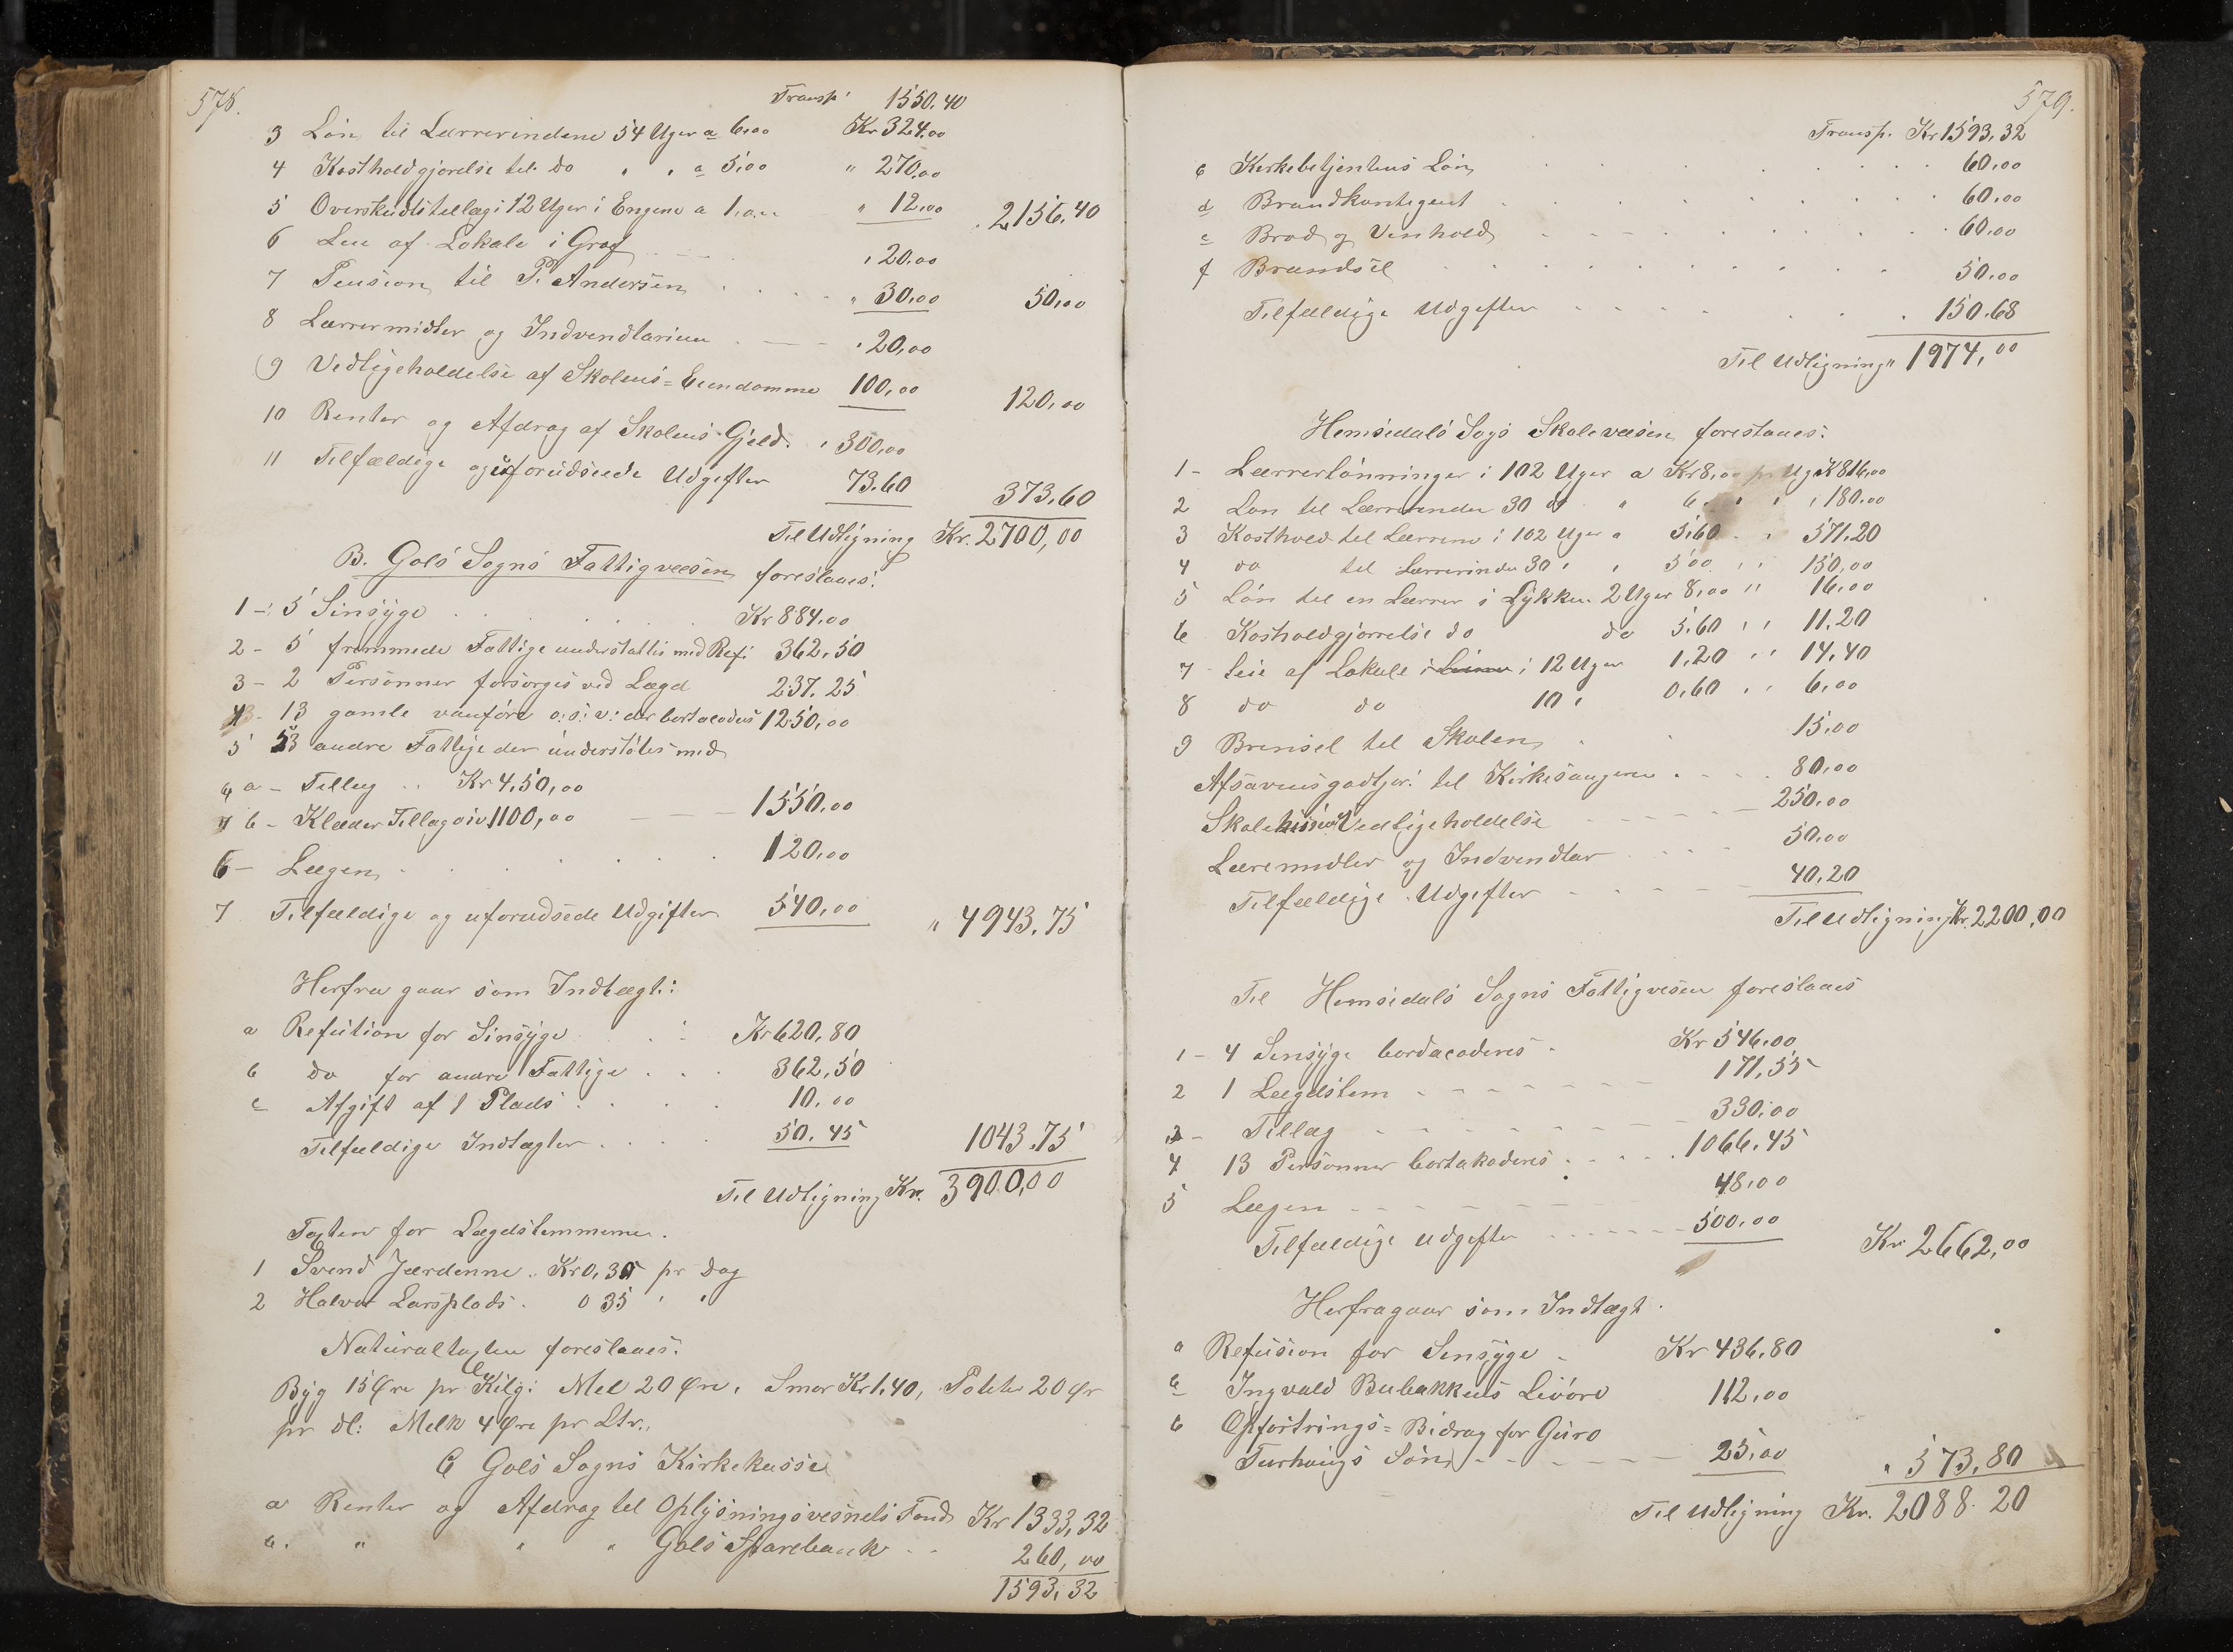 578.
Transp. 1550.40
3 Løn til Lærerinderne 54 Uger a 6,00 Kr 324.00
4 Kostholdgjørelse til do " " a 5,00 " 270,00
5 Overskudstillæg i 12 Uger i Engene a 1,00 " 12,00 2156,40
6 Leie af Lokale i Grøf " 20,00
7 Pension til P. Andersen " 30,00 50,00
8 Lærermidler og Indvendtarium " 20,00
9 Vedligeholdelse af Skolens=Eiendomme 100,00 120,00
10 Renter og Afdrag af Skolens Gjeld. " 300,00
11 Tilfældige og uforudseede Udgifter 73.60 373,60
Til Udligning Kr. 2700,00
B. Gols Sogns Fattigvæsen foreslaaes:
1 - 5 Sinsyge Kr 884,00
2 - 5 fremmede Fattige understøttes med Ref: 362,50
3 - 2 Personner forsørges ved Lægd 237,25
4 - 13 gamle vanføre o.s.v. der bortacoderes 1250,00
5 53 andre Fattige der understøtes med
a - Tillæg Kr 4,50,00
b - Klæder Tillæg oiv 1100,00 1550,00
6 - Lægen 120,00
7 Tilfældige og uforudsede Udgifter 540,00 " 4943,75
Herfra gaar som Indtægt:
a Refution for Sinsyge Kr 620,80
b do for andre Fattige 362,50
c Afgift af 1 Plads 10,00
Tilfældige Indtægter 50.45 1043.75
Til Udligning Kr. 3900,00
Taxten for Lægdslemmerne.
1 Svend Jærdenne Kr 0,35 pr Dag
2 Halvor Larsplads 0 35 " "
Naturaltaxten foreslaaes:
Byg 15 Øre pr Kilg: Mel 20 Øre, Smør Kr 1,40, Poteter 20 Ør
pr dl: Melk 4 Øre pr Ltr.,
C Gols Sogns Kirkekasse
a Renter og Afdrag til Oplysningsvesnets Fond Kr 1333,32
b. " " " Gols Sparebank 260,00
1593,32
579.
Transp. Kr 1593,32
c Kirkebetjentens Løn 60,00
d Brandkontigent 60,00
e Brød og Vinhold 60,00
f Brændsel 50,00
Tilfældige Udgifter 150.68
Til Udligning " 1974,00
Hemsedals Sogs Skolevæsen foreslaaes:
1 - Lærerlønninger i 102 Uger a Kr 8,00 pr Uge K 816,00
2 Løn til Lærerinder 30 do " 6 " " " 180,00
3 Kosthold til Lærerne i 102 Uger a 5,60 " 571.20
4 do til Lærerinder 30 " " 5 00 " " 150,00
5 Løn til en Lærer i Lykkja 2 Uger 8,00 " 16,00
6 Kostholdgjørrelse do do 5.60 " " 11.20
7 Leie af Lokale i i 12 Uger 1,20 " " 14,40
8 do do 10 " 0,60 " " 6,00
9 Brensel til Skolen 15,00
Afsavnsgodtgjør: til Kirkesangeren 80,00
Skolehusenes Vedligeholdelse 250,00
Læremidler og Indvendtar 50,00
Tilfældige Udgifter 40.20
Til Udligning Kr. 2200,00
Til Hemsedals Sogns Fattigvesen foreslaaes
1 - 4 Sensyge bordacoderes Kr 546,00
2 1 Lægdslem 171,55
3 - Tillæg 330,00
4 13 Personner bortakoderes 1066,45
5 Lægen 48,00
Tilfældige udgifter 500,00 Kr 2662,00
Herfragaar som Indtægt
a Refusion for Sensyge Kr 436,80
b Ingvald Bubakkens Livøre 112,00
c Opfostrings=Bidrag for Guro
Turhaugs Søn 25,00 " 573,80
Til Udligning Kr. 2088.20